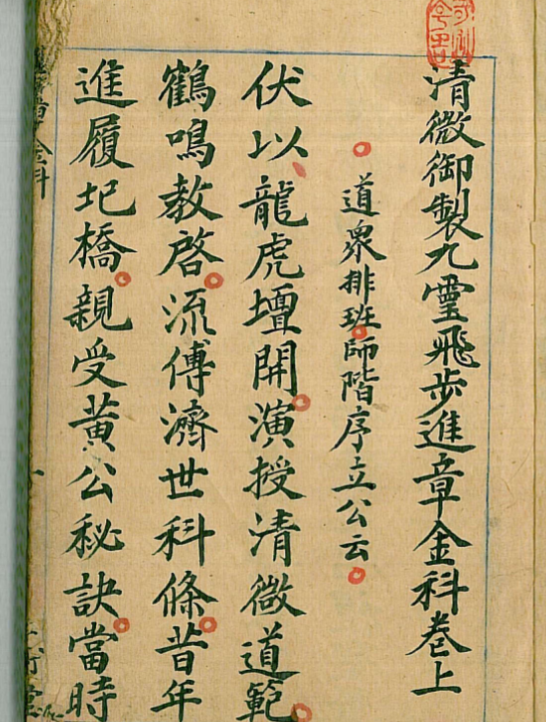 清微御製九靈飛步進章金科卷上
道眾排班師階序立公云
伏以龍虎壇開演授清微道範
鶴鳴教啓流傳濟世科條昔年
進履圯橋親受黃公秘訣當時